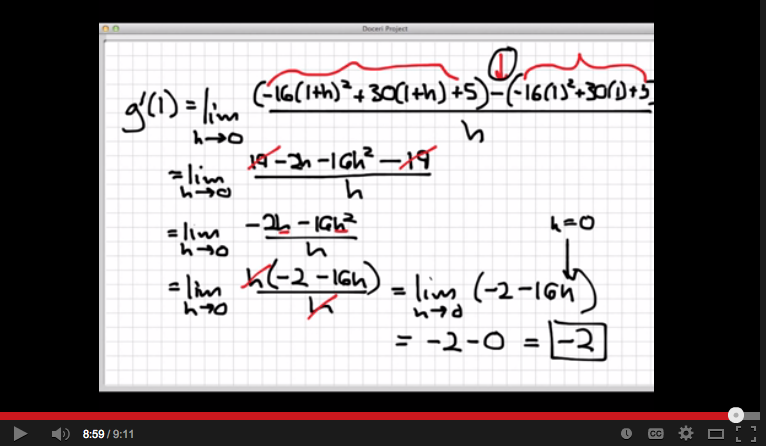 Doceri Project
g'(1) = lim h→0 (-16(1+h)² + 30(1+h) + 5) - (-16(1)² + 30(1) + 5) / h
= lim h→0 19 - 2h - 16h² - 19 / h
= lim h→0 -2h - 16h² / h
h = 0
= lim h→0 h(-2 - 16h) / h = lim h→0 (-2 - 16h)
= -2 - 0 = -2
8:59 / 9:11
CC